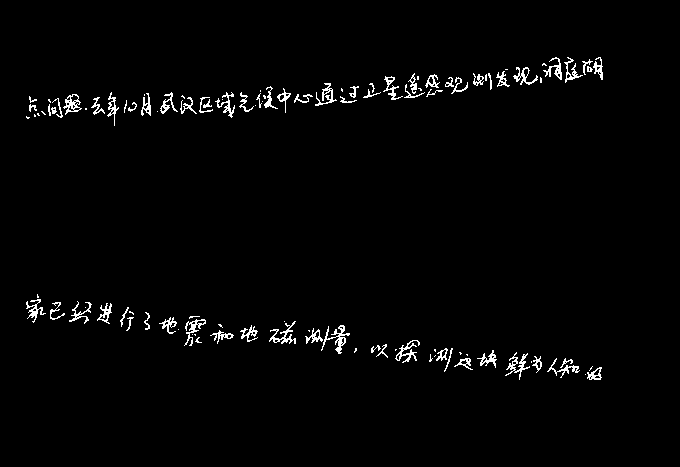 点问题.去年10月武汉区域气候中心通过卫星遥感观测发现,洞庭湖
家已经进行了地震和地磁测量,以探测这块鲜为人知的